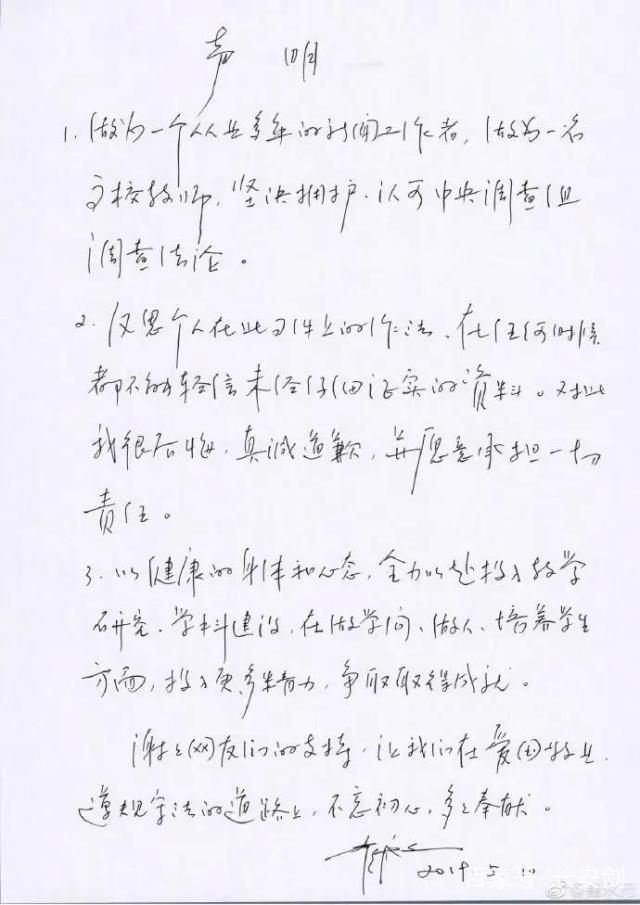 声 明
1. 做为一个从业多年的新闻工作者，做为一名
高校教师，坚决拥护、认可中央调查组
调查结论。
2. 反思个人在此事件上的作法，在任何时候
都不能轻信未经仔细证实的资料。对此
我很后悔，真诚道歉，并愿意承担一切
责任。
3. 以健康的身体和心态，全力以赴投入教学
研究、学科建设，在做学问、做人、培养学生
方面，投入更多精力，争取取得成就。
谢谢网友们的支持，让我们在爱国敬业
遵规守法的道路上，不忘初心，多多奉献。
2019.5.10
百家号/长安剑
@崔永元